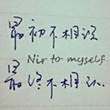 最初不相识
Nir to myself
最终不相认